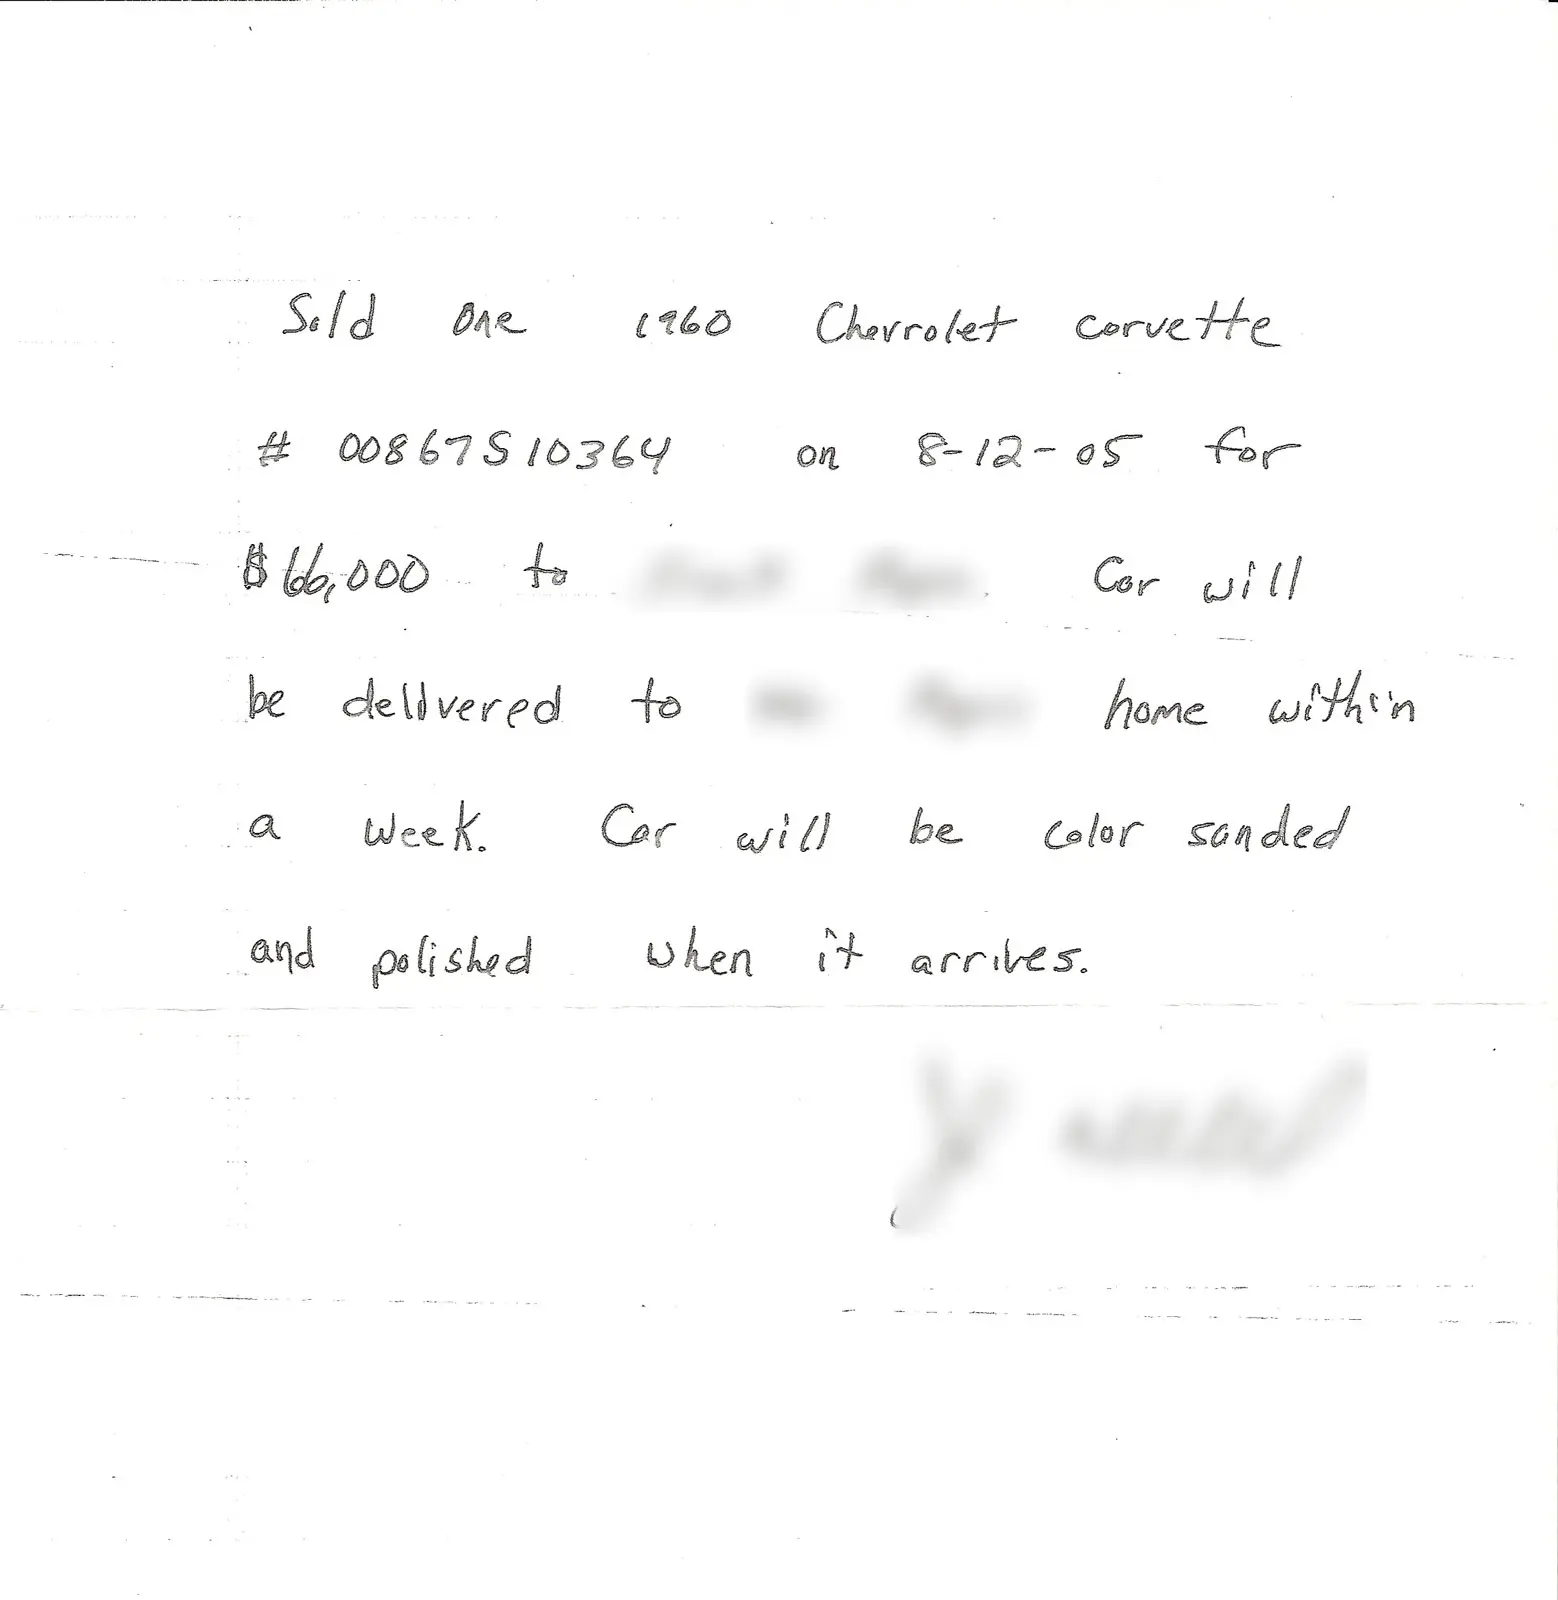 Sold One 1960 Chevrolet corvette
# 00867S10364 on 8-12-05 for
$66,000 to Car will
be delivered to home within
a week. Car will be color sanded
and polished when it arrives.